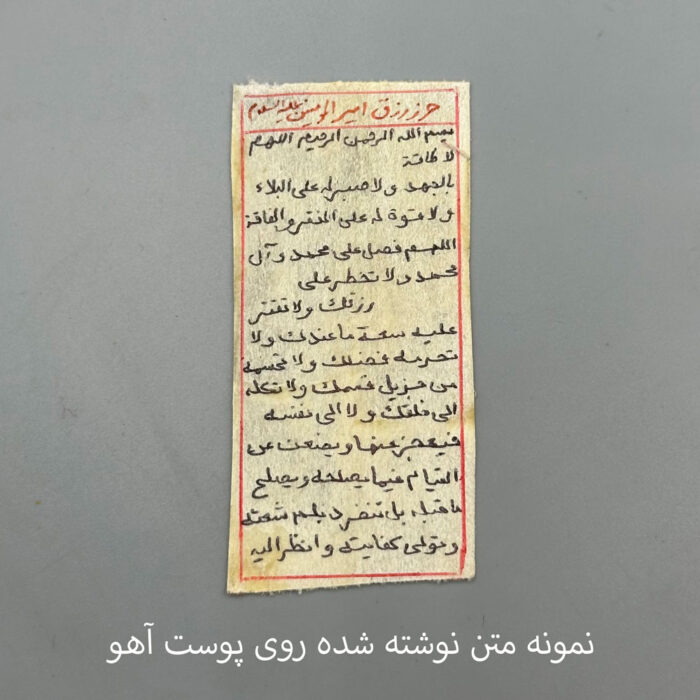 حرز رزق امیر المومنین علیه السلام
بسم الله الرحمن الرحیم اللهم
لا طاقة
بالجهد ولا صبر له علی البلاء
ولا قوة له علی الفقر والفاقة
اللهم فصل علی محمد وآل
محمد ولا تحظر علی
رزقك ولا تقتر
علیه سعة ما عندك ولا
تحرمه فضلك ولا تحسمه
من جزیل قسمك ولا تكله
الی خلقك ولا الی نفسه
فیعجز عنها ویضعف عن
القیام فیما یصلحه ویصلح
ما قبله بل تنفرد بلم شعثه
وتولی كفایته وانظر الیه
نمونه متن نوشته شده روی پوست آهو